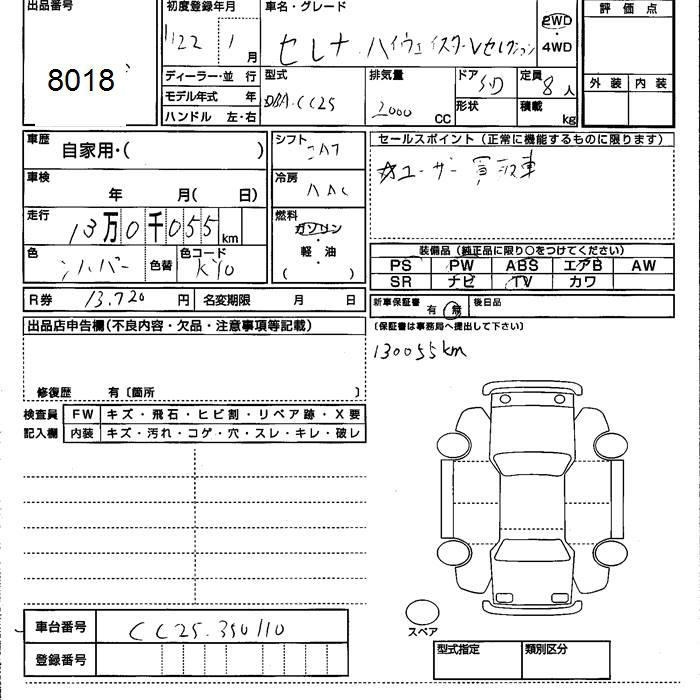 出品番号
8018
初度登録年月
H22 年 1 月
車名・グレード
セレナ ハイウェイスターVセレクション
2WD
・
4WD
評価点
外装 内装
ディーラー・並 行
モデル年式 年
ハンドル 左・右
型式
DBA-CC25
排気量
2000 CC
ドア 5D
形状
定員
8 人
積載
kg
車歴
自家用・( )
シフト
車検
年 月( 日)
冷房
AAC
走行
13万0千055km
燃料
ガソリン
・
軽・油
( )
色
シルバー
色替
色コード
KY0
R券 13,720 円
名変期限 月 日
セールスポイント(正常に機能するものに限ります)
☆ユーザー買取車
装備品(純正品に限り○をつけてください)
PS PW ABS エアB AW
SR ナビ TV カワ
新車保証書 有 無
後日品
(保証書は事務局へ提出して下さい)
130055km
出品店申告欄(不良内容・欠品・注意事項等記載)
修復歴 有〔箇所 〕
検査員 FW キズ・飛石・ヒビ割・リペア跡・X要
記入欄 内装 キズ・汚れ・コゲ・穴・スレ・キレ・破レ
車台番号 CC25-350110
登録番号
スペア
型式指定 類別区分